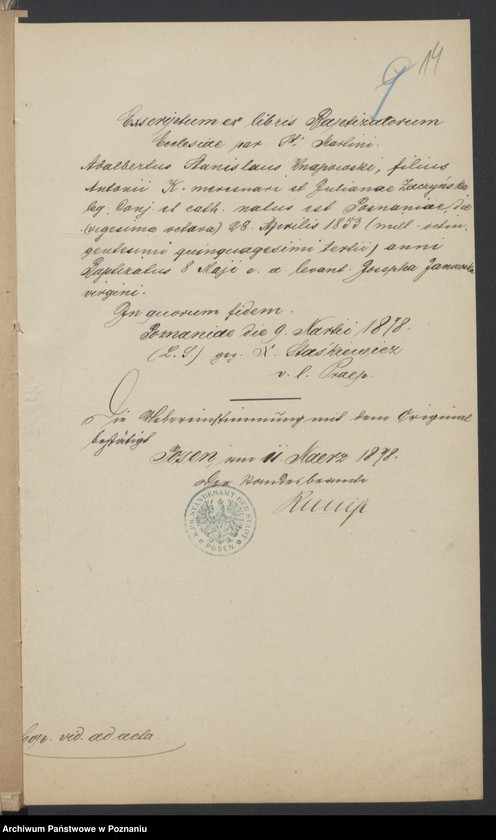 9 14
Excerptum ex libris Baptizatorum
Ecclesiae par St. Martini.
Adalbertus Stanislaus Knapowski, filius
Antonii K. mercenari et Julianae Zaczyńska
leg. Conj et cath. natus est Posnaniae, die
(vigesima octava) 28. Aprilis 1853 (mill. octin
gentesimi quinquagesimi tertii) anni
Baptizatus 8 Maji e. a levant. Josepha Janowska
virgini.
In quorum fidem.
Posnaniae die 9. Martii 1878.
(L.S) gez. X. Staśkiewicz
Praep.
Die Uebereinstimmung mit dem Original
bestätigt
Posen, am 11. Maerz 1878.
Der Standesbeamte
K. PR. STANDESAMT DER STADT
* POSEN *
Cop. vid. ad acta
Archiwum Państwowe w Poznaniu